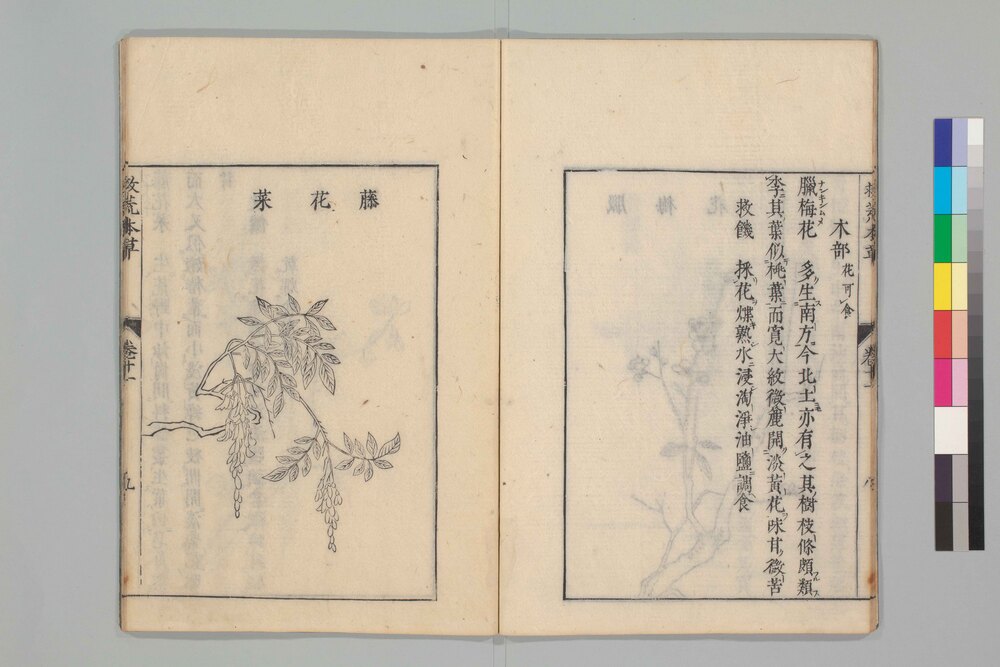 救荒本草
卷十一
木部 花可食
臘梅花 多生南方今北土亦有之其樹枝條頗類
ナンキンムメ
李其葉似桃葉而寛大紋微麄開淡黃花味甘微苦
救饑 採花煠熟水浸淘淨油鹽調食
藤花菜
救荒本草
卷十一
五